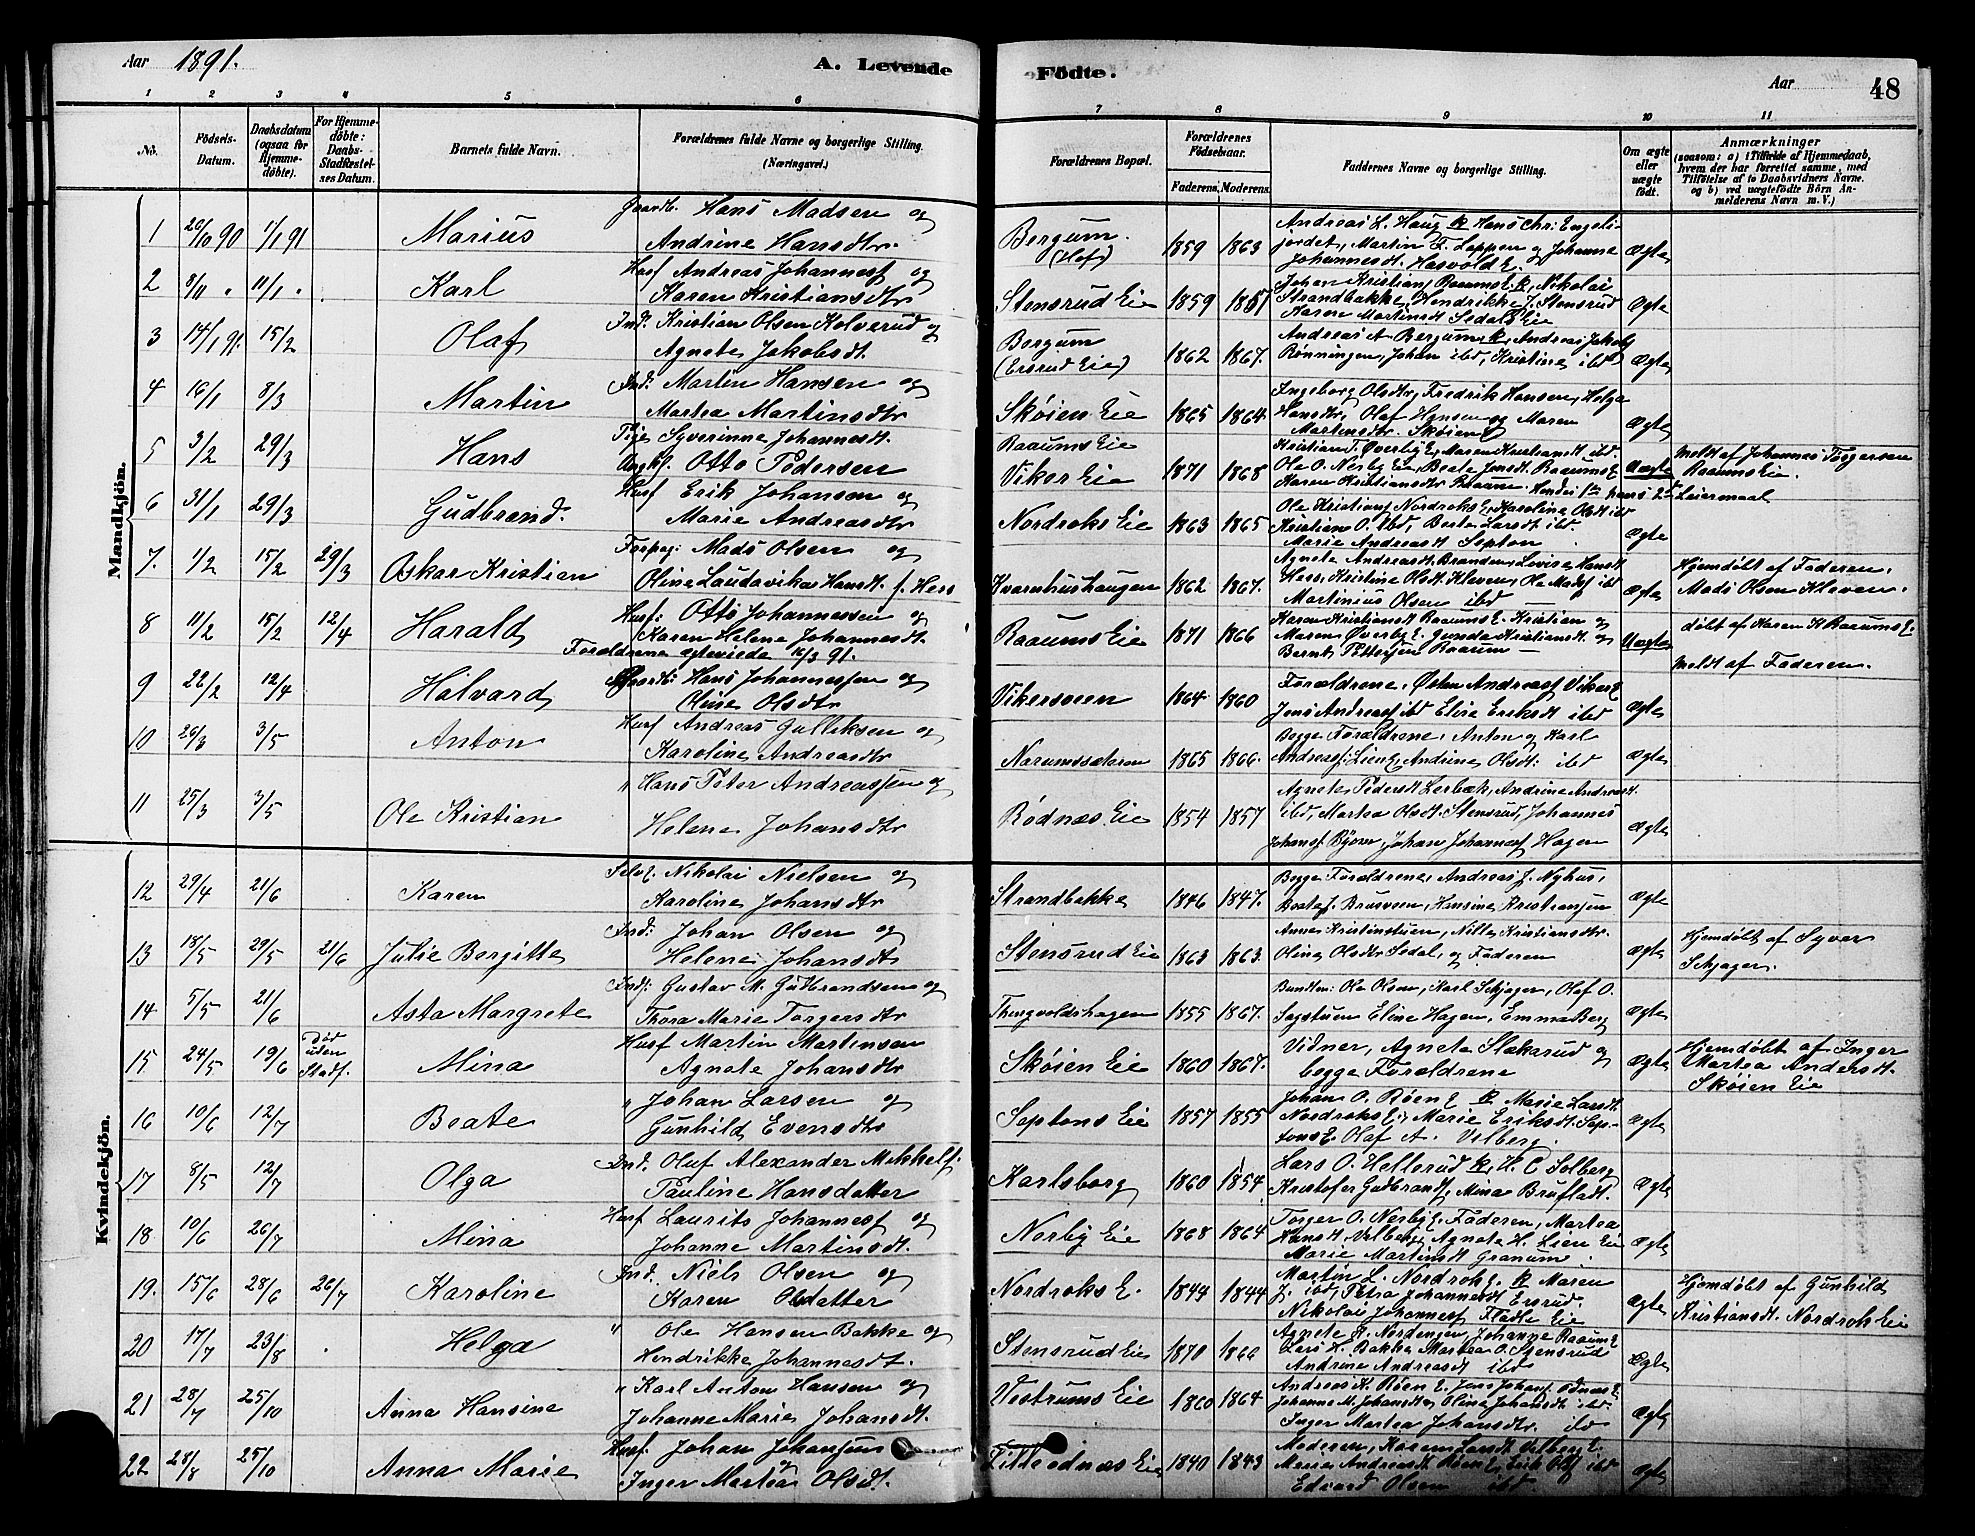 Aar 1891.
A. Levende Födte.
Aar 48
1 2 3 4 5 6 7 8 9 10 11
No.
Födsels-Datum.
Daabsdatum (ogsaa for Hjemmedöbte).
For Hjemmedöbte: Daabs-Stadfæstelses Datum.
Barnets fulde Navn.
Forældrenes fulde Navne og borgerlige Stilling. (Næringsvei.)
Forældrenes Bopæl.
Forældrenes Födselsaar.
Faderens. Moderens.
Faddernes Navne og borgerlige Stilling.
Om ægte eller uægte födt.
Anmærkninger
(saasom: a) i Tilfælde af Hjemmedaab, hvem der har forrettet samme, med Tilföielse af to Daabsvidners Navne, og b) ved uægtefödte Börn Anmelderens Navn m. V.)
Mandkjön.
1 26/10 90 1/1 91 Marius Gaardb. Hans Madsen og Andrine Hansdtr. Bergum (Hof) 1859 1863 Andreas L. Haug K Hans Chr: Engelijordet, Martin F. Loppen og Johanne Johannesdt. Hasvold E. Ægte
2 8/11 " 11/1 " Karl Husf Andreas Johannesf og Karen Kristiansdtr Stensrud Eie 1859 1851 Johan Kristiansf Raaums E. K, Nikolai Strandbakke, Hendrikke J. Stensrud Karen Martinsdt Sedals Eie Ægte
3 14/1 91. 15/2 Olaf Ind. Kristian Olsen Kolverud og Agnete Jakobsdt. Bergum (Ersrud Eie) 1862 1867. Andreas A. Bergum K, Andreas Jakobsf Rønningen, Johan ibd, Kristine ibd Ægte
4 16/1 8/3 Martin Ind. Martin Hansen og Martea Martinsdtr Skøien Eie 1865 1864. Ingeborg Olsdtr, Fredrik Hansen, Helga Hansdtr, Olaf Hansen og Maren Martinsdtr. Skøien E Ægte
5 3/2 29/3 Hans Pige Syverinne Johannesdt. Ungkf. Otto Pedersen Raaums Eie Viker Eie 1871 1868 Kristian T. Øverby E, Maren Kristiansdt ibd. Ole O. Nerby Eie, Beate Jensdt. Raaums E Karen Kristiansdtr Raaum. Hendes 1ste hans 2det Leiermaal Uægte Meldt af Johannes Torgersen Raaums Eie.
6 31/1 29/3 Gudbrand. Husf Erik Johansen og Marie Andreasdtr Nordroks Eie 1863 1865 Ole Kristiansf Nordroks E. Karoline Olsdt ibd Kristian O. Ibd, Berte Larsdt ibd. Marie Andreasdt Septon Ægte
7. 1/2 15/2 29/3 Oskar Kristian Forpag: Mads Olsen og Oline Laudavika Hansdt. f. Hess Kvarnhushaugen 1862 1867. Agnete Andreasdt. Branden, Lovise Hansdt Hess, Kristine Olsdt. Kleven, Ole Madsf ibd Martinius Olsen ibd Ægte Hjemdøbt af Faderen, Mads Olsen Kleven.
8 11/2 15/2 12/4 Harald Husf: Otto Johannessen og Karen Helene Johannesdt. Forældrene egteviede 16/3 91. Raaums Eie 1871 1866 Karen Kristiansdt Raaums E. Kristian og Maren Øverby E. Gunda Kristiansdt. og Bernt Pettersen Raaum Uægte døbt af Karen K Raaums E. Meldt af Faderen.
9 22/2 12/4 Halvard Gaardb: Hans Johannessen og Oline Olsdtr Vikersveen 1864 1860 Forældrene, Østen Andreasf Viker E Jens Andreasf ibd Elise Eriksdt ibd Ægte
10 26/3 3/5 Anton Husf Andreas Gulliksen og Karoline Andreasdtr Narumsædaren 1865 1866. Begge Forældrene, Anton og Karl Andreasf: Lien E. Andrine Olsdt: ibd Ægte
11 25/3 3/5 Ole Kristian " Hans Peter Andreassen og Helene Johansdtr Rødnæs Eie 1854 1857 Agnete Pedersdt Lerbæk, Andrine Andreasdt. ibd, Martea Olsdt. Stensrud, Johannes Johansf Byøvn, Johan Johannesf Hagen Ægte
Kvindekjön.
12 29/4 21/6 Karen Selvf. Nikolai Nielsen og Karoline Johansdtr Strandbakke 1846 1847. Begge Forældrene, Andreas J. Nyhus, Beate J. Brusveen, Hansine Kristiansen Ægte
13 18/5 29/5 21/6 Julie Bergitte Ind: Johan Olsen og Helene Johansdt Stensrud Eie 1863 1863. Anne Kristinstuen, Nille Kristiansdtr. Oline Olsdtr Sedal, og Faderen Ægte Hjemdøbt af Syver Schjager.
14 5/5 21/6 Asta Margrete Inds: Gustav M. Gudbrandsen og Thora Marie Torgersdtr Thingvoldshagen 1855 1867. Bundtm: Ole Olsen, Karl Schjager, Olaf O. Sagstuen Eline Hagen, Emma Berg Ægte
15 24/5 19/6 Død uden Stadf. Mina Husf Martin Martinsen Agnete Johansdtr Skøien Eie 1860 1867. Vidner, Agnete Slakerud og begge Forældrene Ægte Hjemdøbt af Inger Martea Andersdt. Skøien Eie
16 10/6 12/7 Beate " Johan Larsen og Gunhild Evensdtr Septons Eie 1857 1855 Johan O. Røen E K. Marie Larsdt. Nordroks E, Marie Eriksdt. Septons E. Olaf A. Velberg. Ægte
17 8/5 12/7 Olga Ind. Oluf Alexander Mikkelsf. Pauline Hansdatter Karlsborg 1860 1854 Lars O. Hellerud K, H. C Solberg Kristofer Gudbrandsf, Mina Brufladt. Ægte
18 10/6 26/7 Mina Husf Laurits Johannesf og Johanne Martinsdt. Nerby Eie 1868 1864 Torger O. Nerby E. Faderen, Martea Hansdt. Velberg, Agnete H. Lien Eie Marie Martinsdt Granum. Ægte
19. 15/6 28/6 26/7 Karoline Ind. Niels Olsen og Karen Olsdatter Nordroks E. 1844 1844 Martin L. Nordrok E. K Maren J. ibd, Petra Johannesdt Ersrud. Nikolai Johannesf Fladte Eie Ægte Hjemdøbt af Gunhild Kristiansdt. Nordrok Eie
20 17/7 23/8 Helga " Ole Hansen Bakke og Hendrikke Johannesdt. Stensrud Eie 1870 1866 Agnete K. Nordengen, Johanne Raaum E Lars H. Bakke Martea O. Stensrud Andrine Andreasdt ibd Ægte
21 28/7 25/10 Anna Hansine " Karl Anton Hansen og Johanne Marie Johansdt. Vestrums Eie 1860 1864 Andreas K. Røen E. Jens Johansf. Odnæs E Johanne M. Johansdtr, Oline Johansdt ibd Inger Martea Johansdtr. ibd Ægte
22 28/8 25/10 Anna Marie Husf. Johan Johansens og Inger Martea Olsdt. Litleodnæs Eie 1840 1843 Moderen, Karen Larsdt Velberg E. Marie Andreasdt Røen E, Erik Olsf ibd Edvard Olsen ibd Ægte